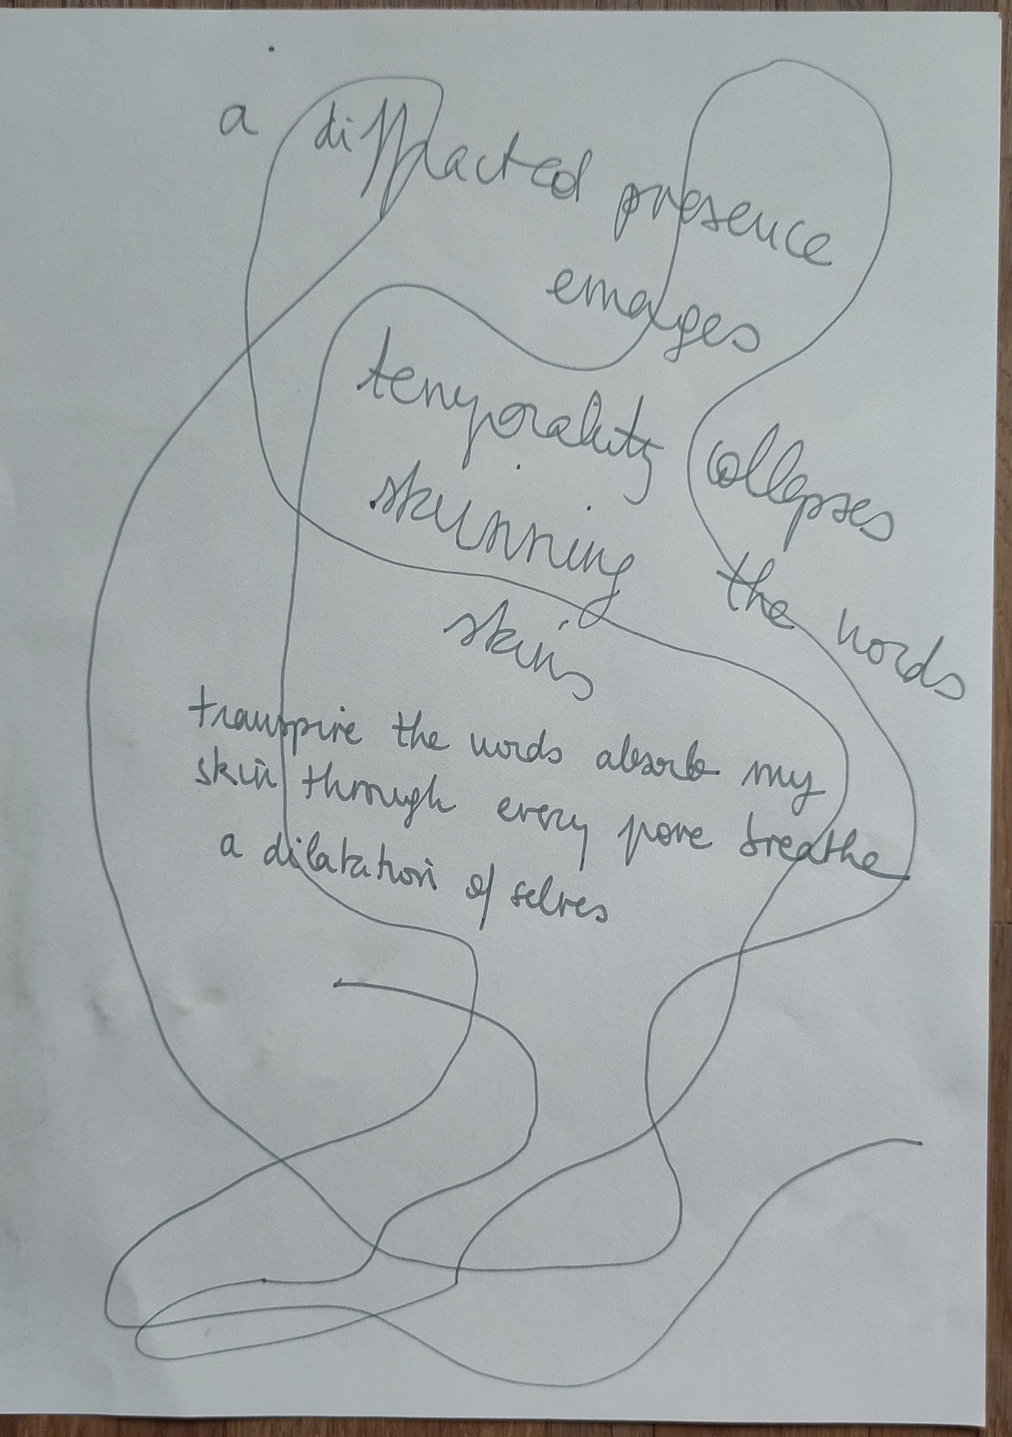 a diffracted presence
emerges
temporality collapses
skinning the words
skins
transpire the words absorb my
skin through every pore breathe
a dilatation of selves